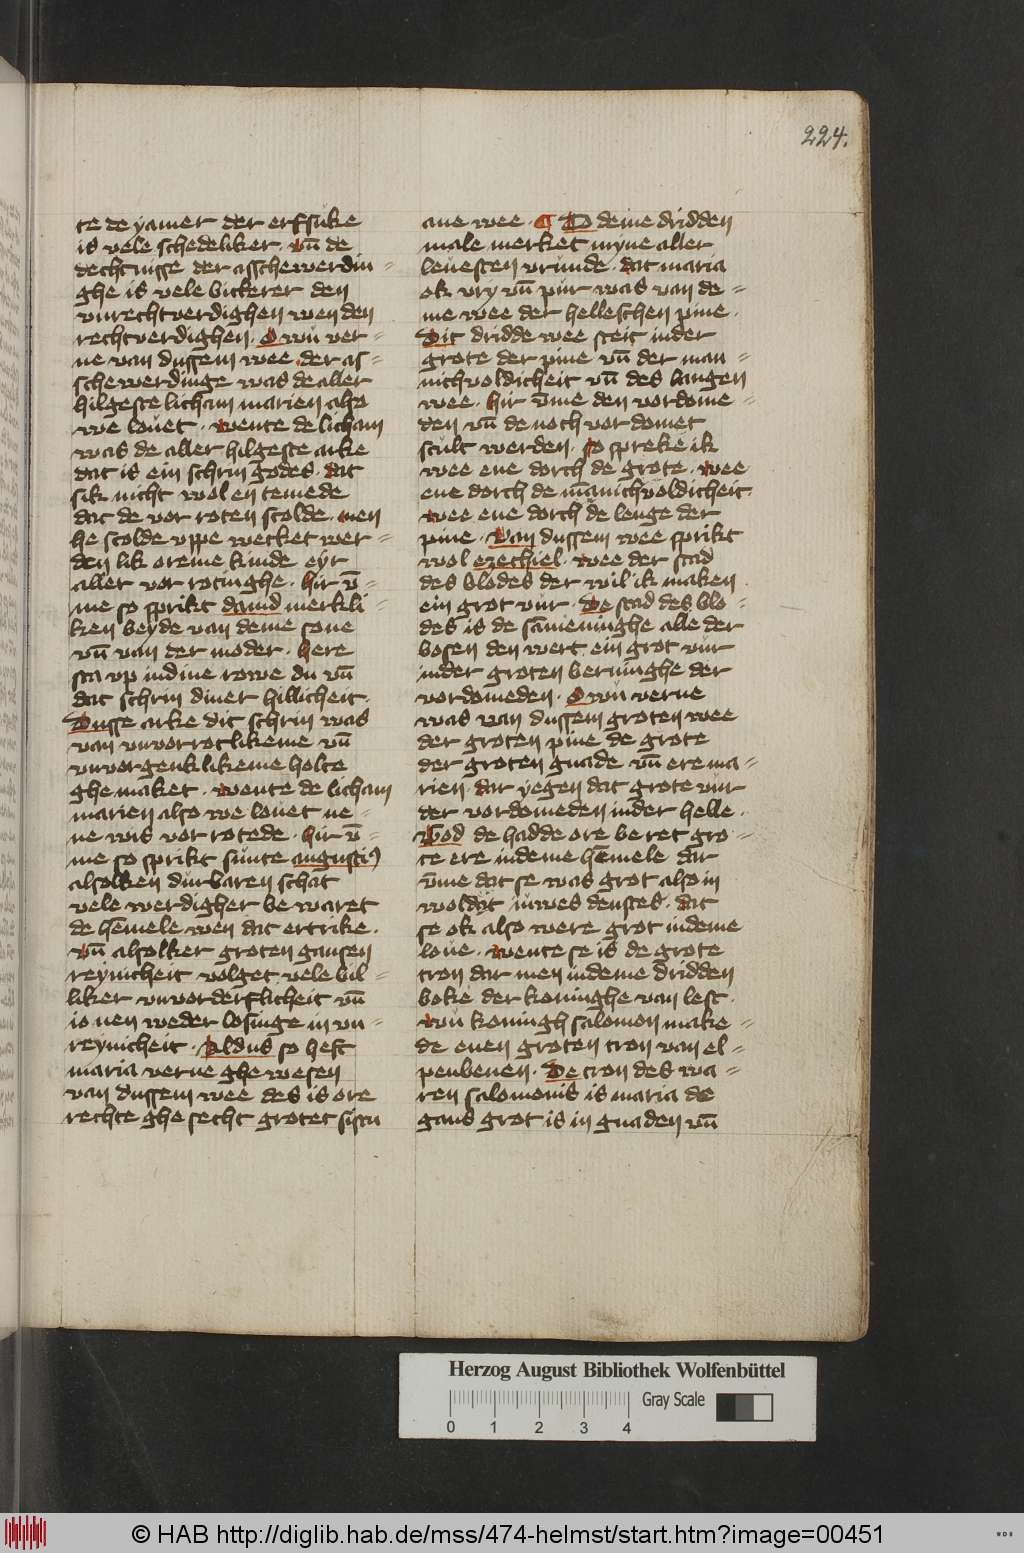 224.
te de yamer der erfsuke
is vele schedeliker. vn̄ de
dechtnisse der asschewerdin=
ghe is vele bitterer den
vnrechtverdighen wen den
rechtverdighen. O wu ver=
ne van dussem wee der as=
schewerdinge was de aller
hilgeste licham marien also
we louet. wente de licham
was de aller hilgeste arke
dat is ein schrin godes. dat
sik nicht wol en temede
dat de vor roten scolde. men
he scolde vppe wecket wer=
den lik oreme kinde eyr
aller vor rotinghe. hir v̄=
me so sprikt dauid merkli=
ken beyde van deme sone
vn̄ van der moder. here
sta vp in dine rowe du vn̄
dat schrin diner hillicheit.
Dusse arke dit schrin was
van vnvorrotlikeme vn̄
vnvorgenklikeme holte
ghe maket. wente de licham
marien also we louet ne=
ne wis vor rotede. hir v̄=
me so sprikt sunte augusti9
alsolken durbaren schat
vele werdigher be waret
de hēmele wen dat ertrike.
vn̄ alsolker groten gansen
reynicheit volget vele bil=
liker vnvorderflicheit vn̄
io nen weder losinge in vn=
reynicheit. Aldus so heft
maria verne ghe wesen
van dussem wee des is ore
rechte ghe secht grotet sistu
ane wee. ¶ To deme dridden
male merket myne aller
leuesten vrunde. dat maria
ok vry vn̄ pur was van de=
me wee der helleschen pine.
Dit dridde wee steit in der
grote der pine vn̄ der man=
nichvoldicheit vn̄ des langen
wee. hir v̄me den vordome=
den vn̄ de noch vor domet
scult werden. so spreke ik
wee ene dorch de grote. wee
ene dorch de mānichvoldicheit.
wee ene dorch de lenge der
pine. Van dussem wee sprikt
wol ezechiel. wee der stad
des blodes der wil ik maken
ein grot vur. De stad des blo=
des is de sāmeninghe alle der
bosen den wert ein grot vur
in der groten berninghe der
vordomeden. O wu verne
was van dussem groten wee
der groten pine de grote
der groten gnade vn̄ ere ma=
rien. dar yegen dat grote vur
der vordomeden in der helle.
God de hadde ore be ret gro=
te ere in deme hēmele dar
v̄me dat se was grot also in
woldyt iuwes denstes. dat
se ok also were grot in deme
loue. wente se is de grote
tron dar men in deme dridden
boke der koninghe van lest.
wu koningh salomon make=
de enen groten tron van el=
penbenen. De tron des wa=
ren salomonis is maria de
gans grot is in gnaden vn̄
Herzog August Bibliothek Wolfenbüttel
0 1 2 3 4
Gray Scale
© HAB http://diglib.hab.de/mss/474-helmst/start.htm?image=00451